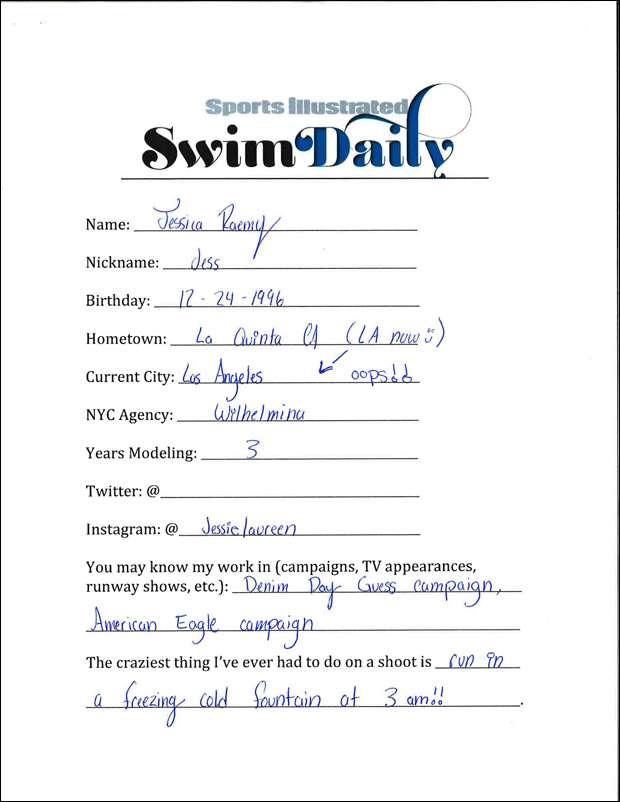 Sports Illustrated
Swim Daily
Name: Jessica Raemy
Nickname: Jess
Birthday: 12-24-1996
Hometown: La Quinta CA (LA now )
Current City: Los Angeles oops!!
NYC Agency: Wilhelmina
Years Modeling: 3
Twitter: @
Instagram: @ Jessielaureen
You may know my work in (campaigns, TV appearances,
runway shows, etc.): Denim Day Guess campaign,
American Eagle campaign
The craziest thing I've ever had to do on a shoot is run in
a freezing cold fountain at 3 am!!.